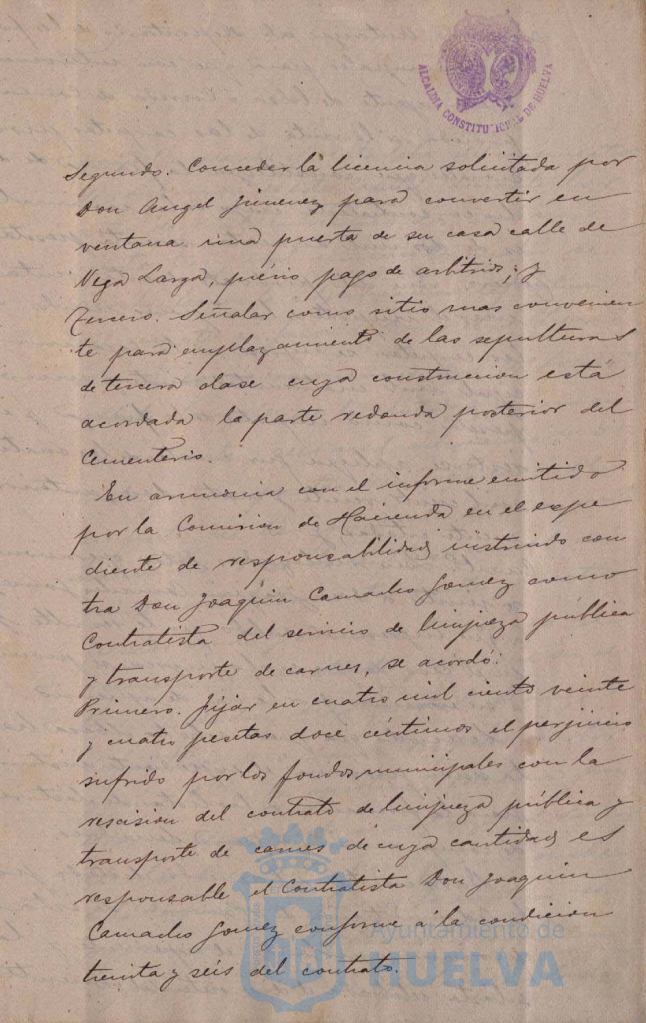 ALCALDIA CONSTITUCIONAL DE HUELVA
Segundo. Conceder la licencia solicitada por
Don Angel Jimenez para convertir en
ventana una puerta de su casa calle de
Vega Larga, prévio pago de arbitrios; y
Tercero. Señalar como sitio mas convenien
te para emplazamiento de las sepulturas
de tercera clase cuya construccion está
acordada la parte redonda posterior del
Cementerio.
En armonia con el informe emitido
por la Comision de Hacienda en el expe
diente de responsabilidad instruido con
tra Don Joaquin Camacho Gomez como
Contratista del servicio de limpieza pública
y transporte de carnes, se acordó:
Primero. Fijar en cuatro mil ciento veinte
y cuatro pesetas doce céntimos el perjuicio
sufrido por los fondos municipales con la
rescision del contrato de limpieza pública y
transporte de carnes de cuya cantidad es
responsable el Contratista Don Joaquin
Camacho Gomez conforme á la condicion
treinta y seis del contrato.
Ayuntamiento de
HUELVA